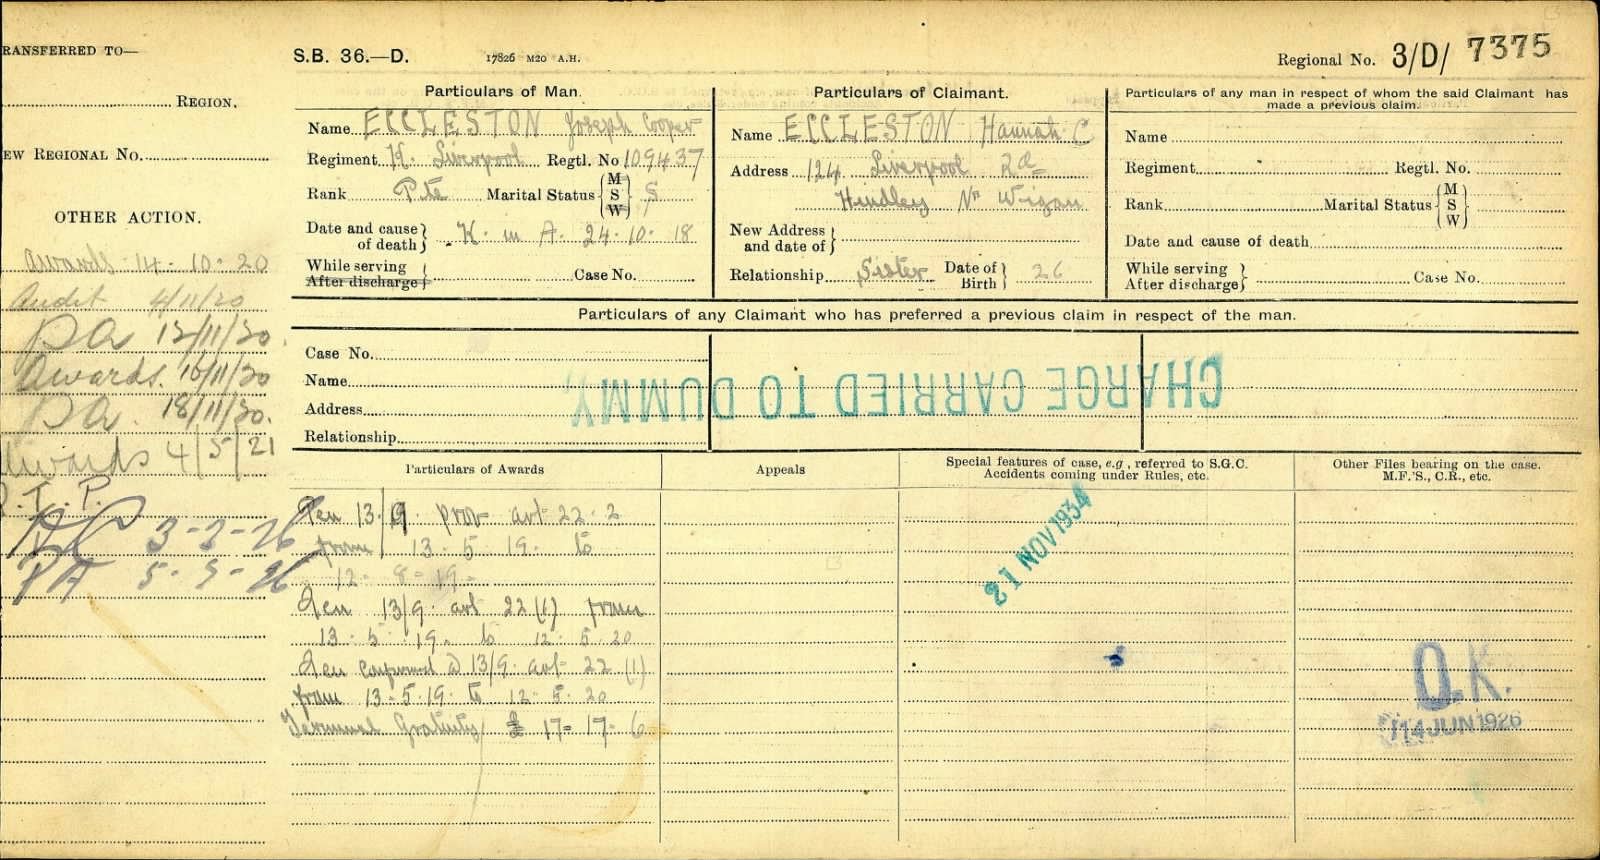 RANSFERRED TO—
REGION.
EW REGIONAL NO.
OTHER ACTION.
Awards 14. 10. 20
Audit 4/11/20
PA 12/11/20.
Awards. 16/11/20
PA. 18/11/20.
Awards 4/5/21
P. T. P.
3-3-26
PA 5-3-26
S.B. 36.—D. 17826 M20 A.H. Regional No. 3/D/ 7375
Particulars of Man.
Name ECCLESTON Joseph Cooper
Regiment K. Liverpool Regtl. No 109437
Rank Pte Marital Status {M S W} S
Date and cause of death} K. in A. 24. 10. 18
While serving
After discharge} Case No.
Particulars of Claimant.
Name ECCLESTON Hannah C
Address 124 Liverpool Rd
Hindley Nr Wigan
New Address and date of}
Relationship Sister Date of Birth} 26
Particulars of any man in respect of whom the said Claimant has
made a previous claim.
Name
Regiment Regtl. No.
Rank Marital Status {M S W}
Date and cause of death
While serving
After discharge} Case No.
Particulars of any Claimant who has preferred a previous claim in respect of the man.
Case No.
Name
Address
Relationship
CHARGE CARRIED TO DUMMY.
Particulars of Awards
Pen 13/9. prov art 22. 2
from 13. 5. 19. to
12. 8. 19.
Pen 13/9. art 22 (1) from
13. 5. 19. to 12. 5. 20
Pen confirmed @ 13/9. art 22 (1)
from 13. 5. 19. to 12. 5. 20
Terminal Gratuity £ 17- 17- 6
Appeals
Special features of case, e.g., referred to S.G.C.
Accidents coming under Rules, etc.
21 NOV 1934
Other Files bearing on the case.
M.F.'S., C.R., etc.
O.K.
14 JUN 1926